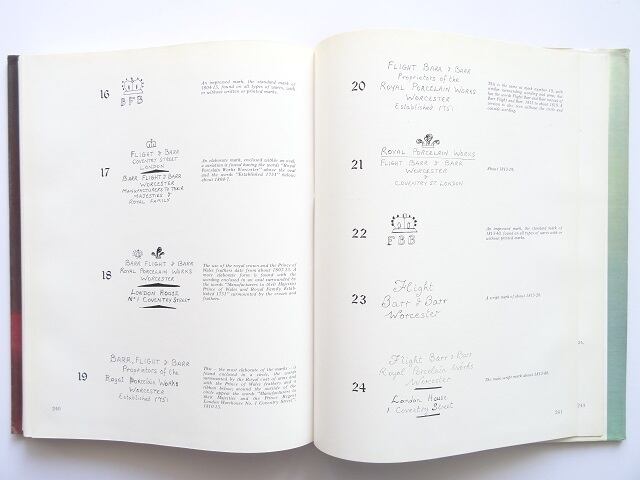 16
BFB
An impressed mark, the standard mark of
1804-13, found on all types of wares, with
or without written or printed marks.
17
FLIGHT & BARR
COVENTRY STREET
LONDON
BARR FLIGHT & BARR
WORCESTER
MANUFACTURERS TO THEIR
MAJESTIES &
ROYAL FAMILY
An elaborate mark, enclosed within an oval,
a variation is found having the words "Royal
Porcelain Works Worcester" above the oval
and the words "Established 1751" below
about
18
BARR FLIGHT & BARR
ROYAL PORCELAIN WORKS
WORCESTER
LONDON HOUSE
No 1 COVENTRY STREET
The use of the royal crown and the Prince of
Wales feathers date from about
more elaborate form is found with the
wording enclosed in an oval surrounded by
the words "Manufacturers to their Majesties
Prince of Wales and Royal Family. Established
1751" surmounted by the crown and
feathers.
19
BARR, FLIGHT & BARR
Proprietors of the
Royal Porcelain Works
WORCESTER
Established 1751
This - the most elaborate of the marks - is
found enclosed in a circle, the words
surmounted by the Royal coat of arms and
with the Prince of Wales feathers, and in a
ribbon below; around the outside of the
circle appear the words "Manufacturers to
their Majesties and the Prince Regent.
London Warehouse No. 1 Coventry Street".
1810-13.
240
20
FLIGHT BARR & BARR
Proprietors of the
ROYAL PORCELAIN WORKS
WORCESTER
Established 1751
This is the same as mark number 19, with
similar surrounding wording and arms, but
has the words Flight Barr and Barr instead of
21
ROYAL PORCELAIN WORKS
FLIGHT BARR & BARR
WORCESTER
&
COVENTRY ST. LONDON
About
22
FBB
An impressed mark, the standard mark of
1813-40, found on all types of wares with or
without printed marks.
23
Flight
Barr & Barr
Worcester
A script mark of about
24
Flight Barr & Barr
Royal Porcelain Works
Worcester
London House
1 Coventry Street
The main script mark about
241
243